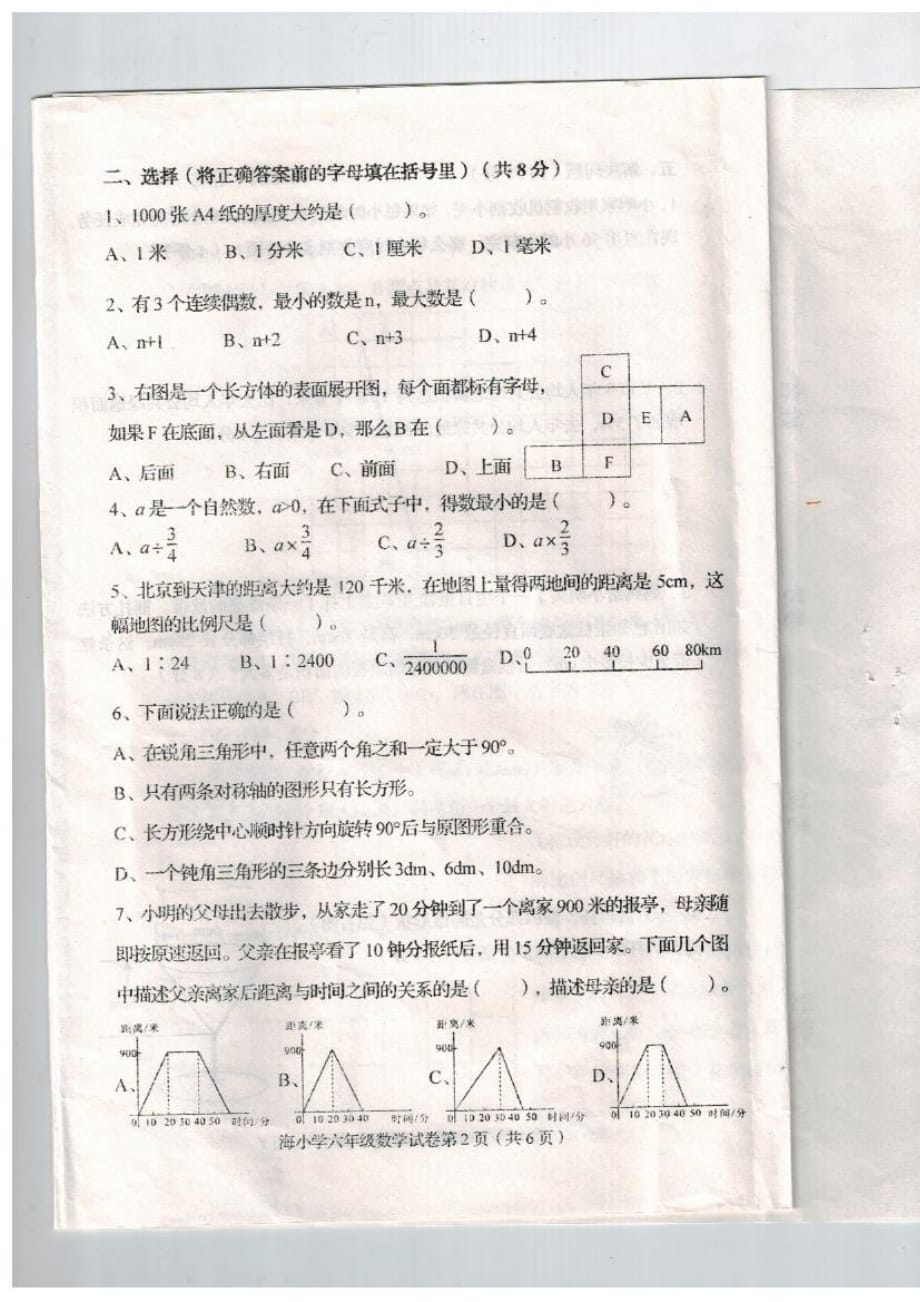 二、选择(将正确答案前的字母填在括号里)(共8分)
1、1000张A4纸的厚度大约是(      )。
A、1米  B、1分米  C、1厘米  D、1毫米
2、有3个连续偶数，最小的数是n，最大数是(      )。
A、n+1  B、n+2  C、n+3  D、n+4
3、右图是一个长方体的表面展开图，每个面都标有字母，
如果F在底面，从左面看是D，那么B在(      )。
A、后面  B、右面  C、前面  D、上面
C
D E A
B F
4、a是一个自然数，a>0，在下面式子中，得数最小的是(      )。
A、a÷3/4  B、a×3/4  C、a÷2/3  D、a×2/3
5、北京到天津的距离大约是120千米，在地图上量得两地间的距离是5cm，这
幅地图的比例尺是(      )。
A、1∶24  B、1∶2400  C、1/2400000  D、0 20 40 60 80km
6、下面说法正确的是(      )。
A、在锐角三角形中，任意两个角之和一定大于90°。
B、只有两条对称轴的图形只有长方形。
C、长方形绕中心顺时针方向旋转90°后与原图形重合。
D、一个钝角三角形的三条边分别长3dm、6dm、10dm。
7、小明的父母出去散步，从家走了20分钟到了一个离家900米的报亭，母亲随
即按原速返回。父亲在报亭看了10钟分报纸后，用15分钟返回家。下面几个图
中描述父亲离家后距离与时间之间的关系的是(      )，描述母亲的是(      )。
距离/米  距离/米  距离/米  距离/米
900  900  900  900
A、  B、  C、  D、
0 10 20 30 40 50 时间/分  0 10 20 30 40 时间/分  0 10 20 30 40 50 时间/分  0 10 20 30 40 50 时间/分
海小学六年级数学试卷第2页(共6页)